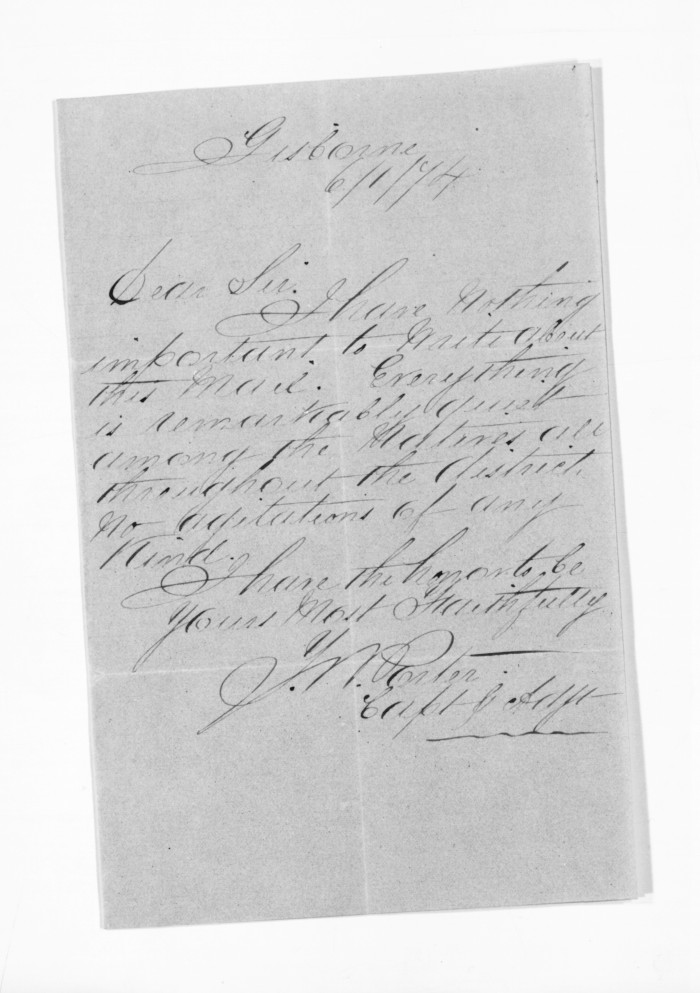 Gisborne
6/1/74
Dear Sir.
I have Nothing
important to Write about
this Mail. Everything
is remarkably quiett
among the Natives all
throughout the district.
No agitations of any
Kind.
I have the honor to be
Yours Most Faithfully
T. W. Porter.
Capt & Adjt